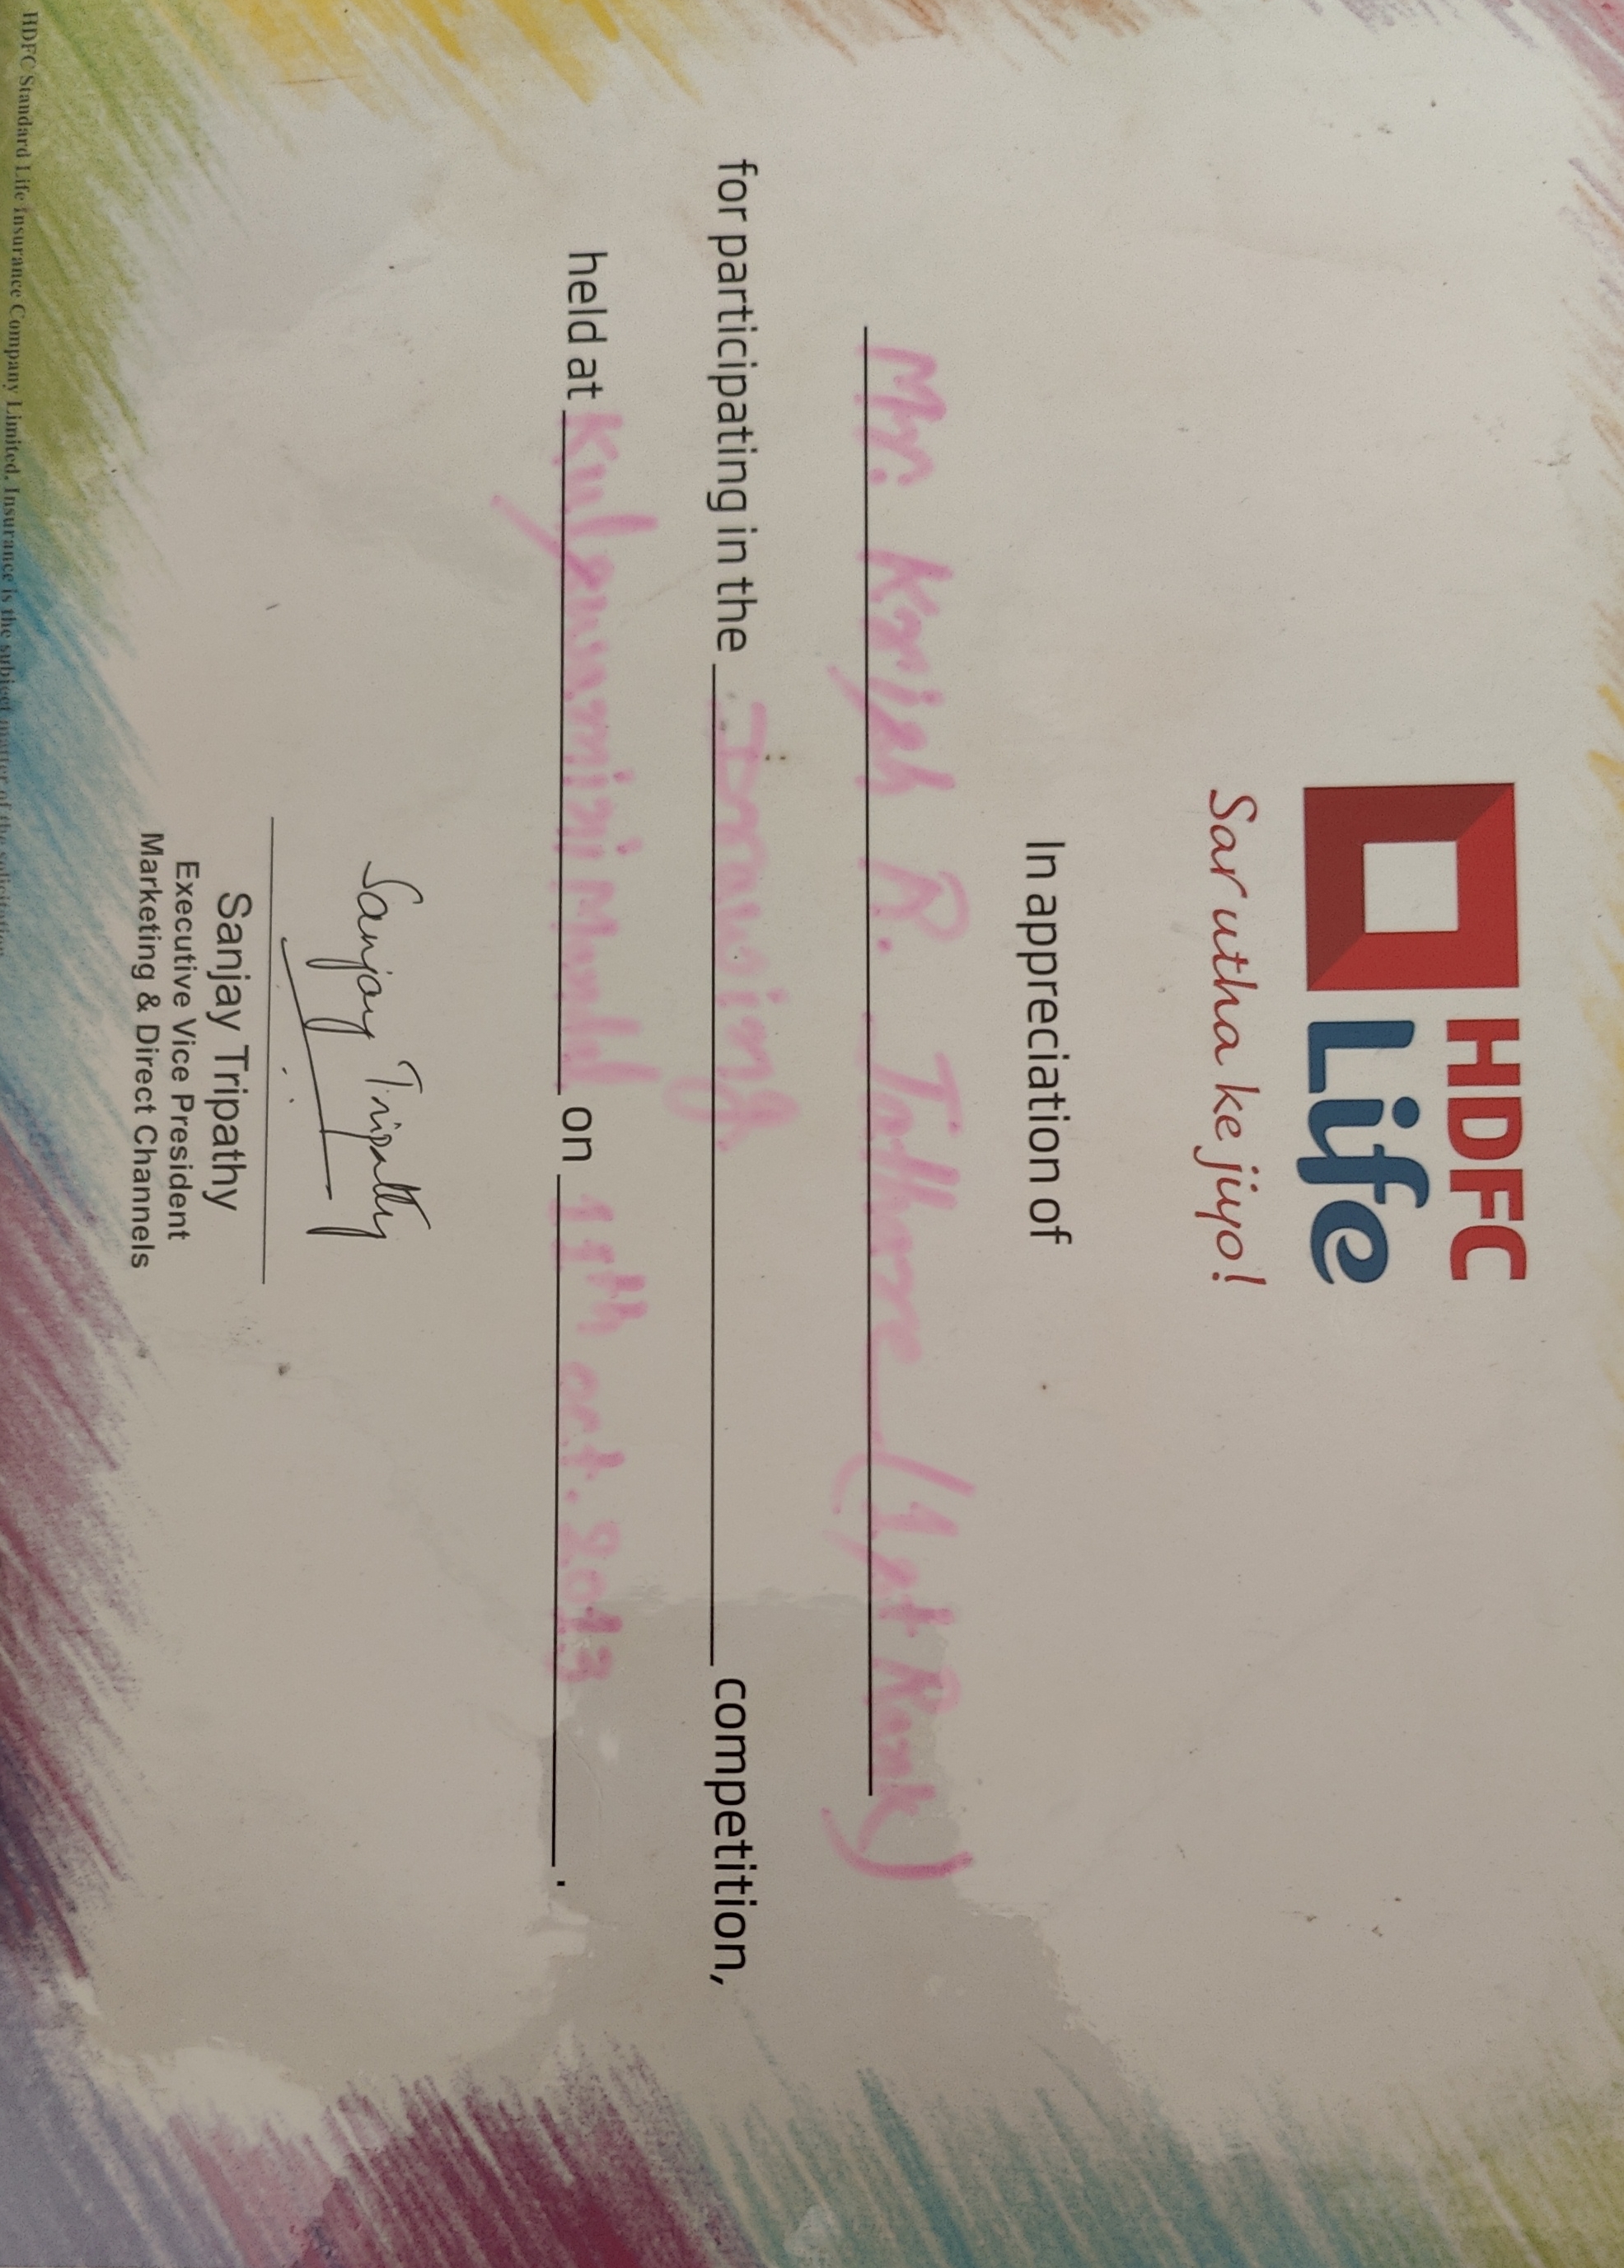 HDFC
Life
Sar utha ke jiyo!
In appreciation of
Mr. Krish R. (1st Rank)
for participating in the Drawing competition,
held at on 11th oct. 2013.
Sanjay Tripathy
Sanjay Tripathy
Executive Vice President
Marketing & Direct Channels
HDFC Standard Life Insurance Company Limited. Insurance is the subject matter of the solicitation.